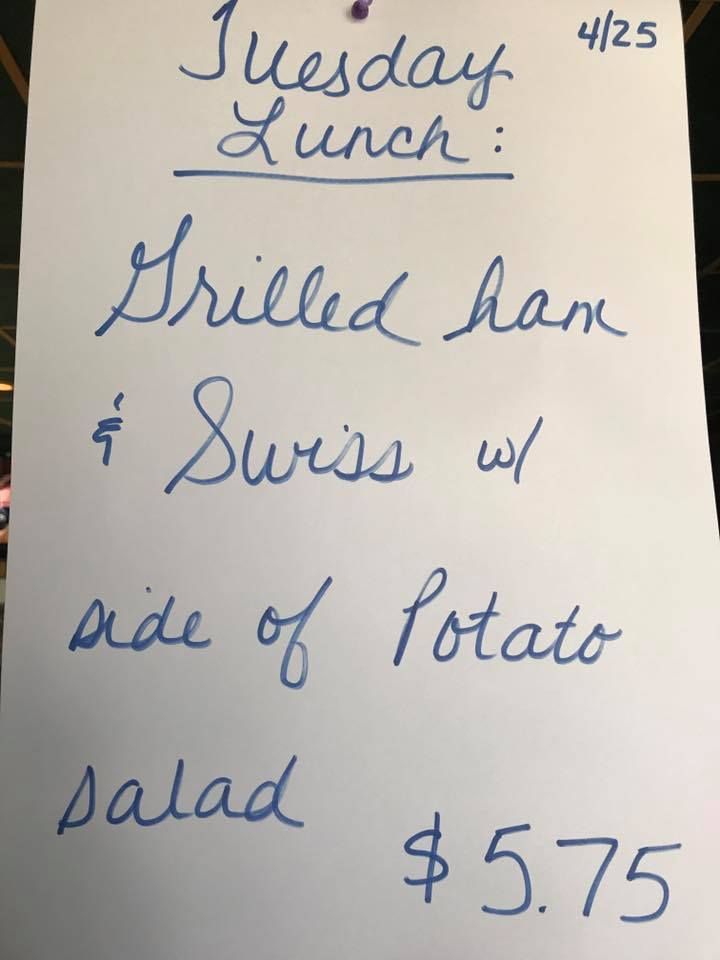 Tuesday 4/25
Lunch:
Grilled ham
& Swiss w/
side of Potato
salad
$5.75